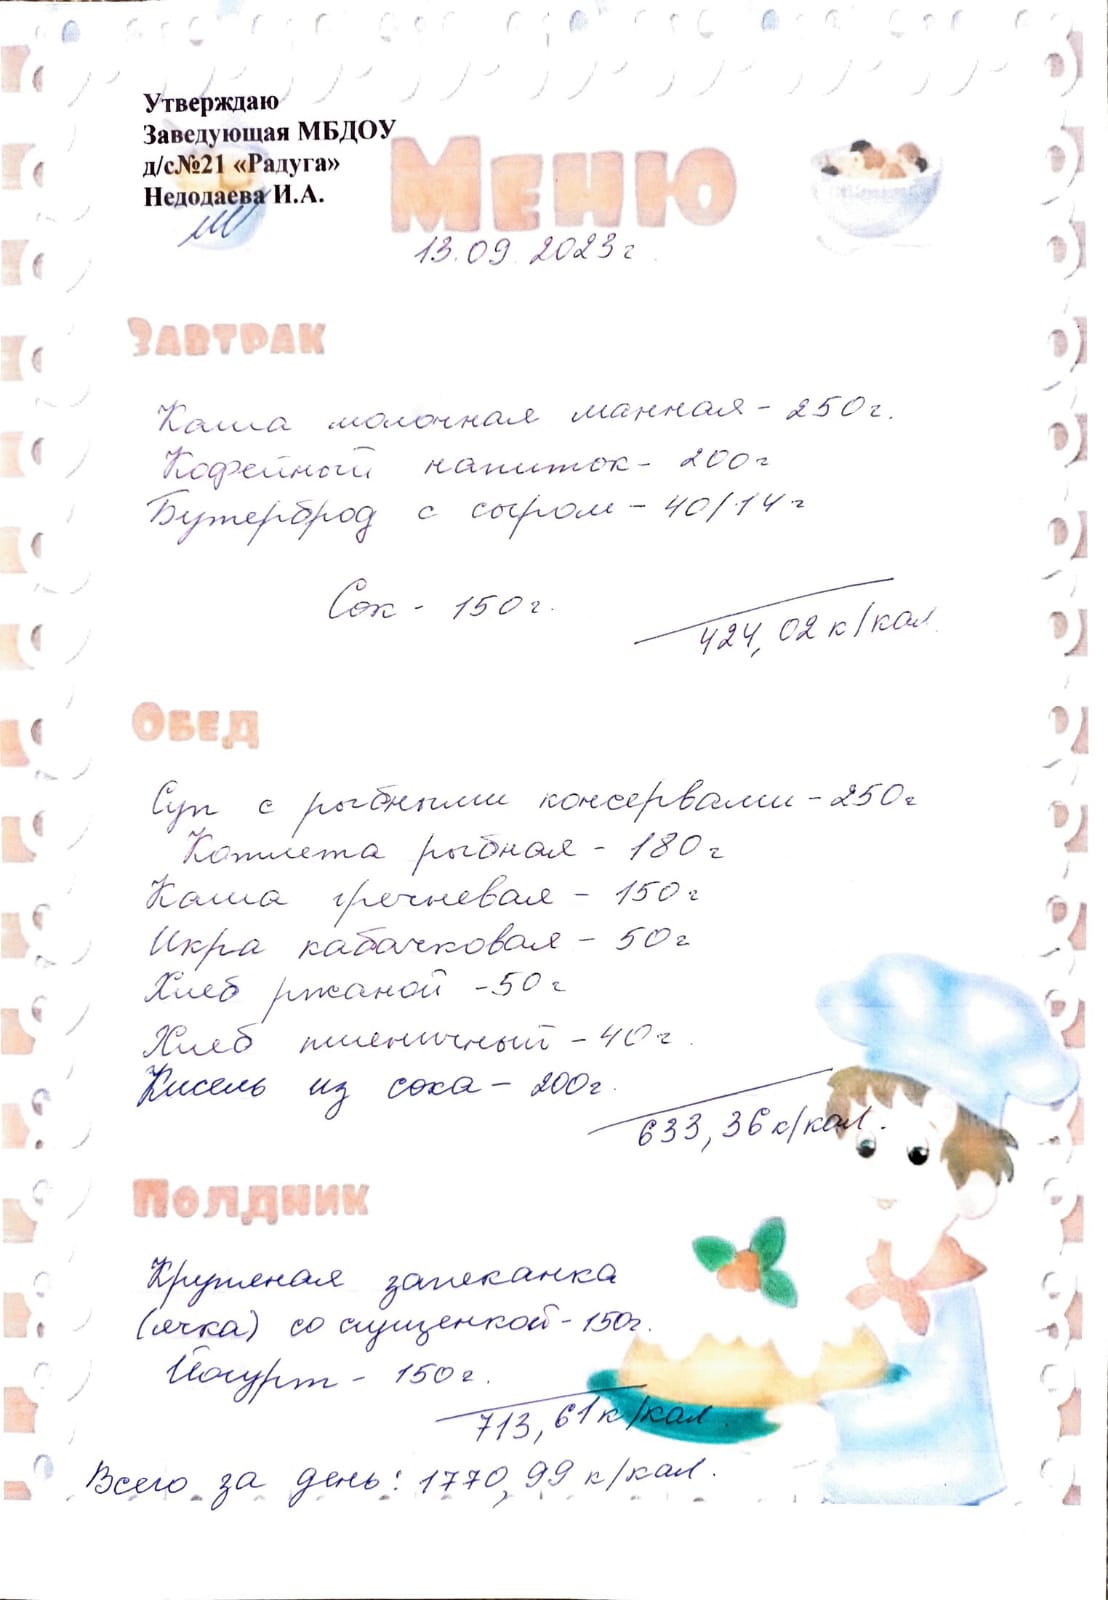 Утверждаю
Заведующая МБДОУ
д/с№21 «Радуга»
Недодаева И.А.
Меню
13.09.2023г.
Завтрак
Каша молочная манная - 250г.
Кофейный напиток - 200г
Бутерброд с сыром - 40/14г
Сок - 150г.
424,02 к/кал
Обед
Суп с рыбными консервами - 250г
Котлета рыбная - 180г
Каша гречневая - 150г
Икра кабачковая - 50г
Хлеб ржаной - 50г
Хлеб пшеничный - 40г.
Кисель из сока - 200г.
633,36 к/кал.
Полдник
Крупяная запеканка
(ячка) со сгущенкой - 150г.
Йогурт - 150г.
713,61 к/кал.
Всего за день: 1770,99 к/кал.